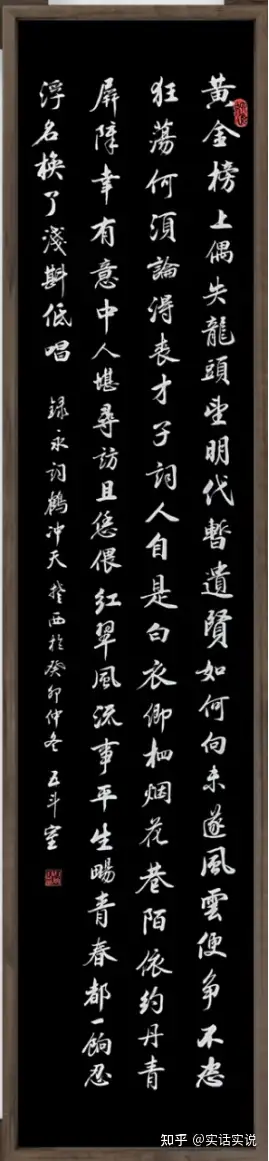 黄金榜上偶失龍頭望明代暫遺賢如何向未遂風雲便争不恣
狂蕩何須論得喪才子詞人自是白衣卿相烟花巷陌依约丹青
屏障幸有意中人堪尋訪且恁偎红翠風流事平生暢青春都一餉忍
浮名换了淺斟低唱 録永词鶴冲天 西於癸卯仲冬 五斗室
知乎 @实话实说